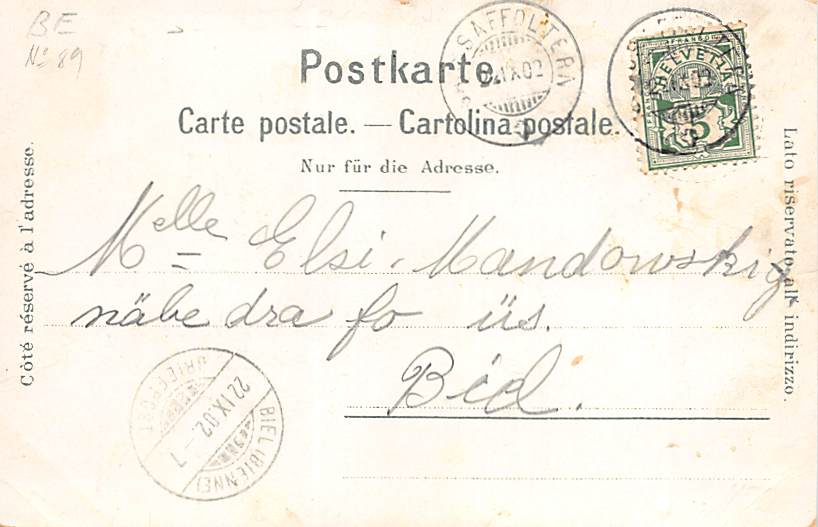 BE
No 89
Postkarte.
Carte postale. — Cartolina postale.
Nur für die Adresse.
Côté réservé à l'adresse.
Lato riservato all' indirizzo.
SAFFOLTERN
IX.02
HELVETIA
5
Melle Elsi Mandowsky
näbe dra fo üs.
Biel.
BRIEFPOST
22.IX.02.-7
BIEL (BIENNE)